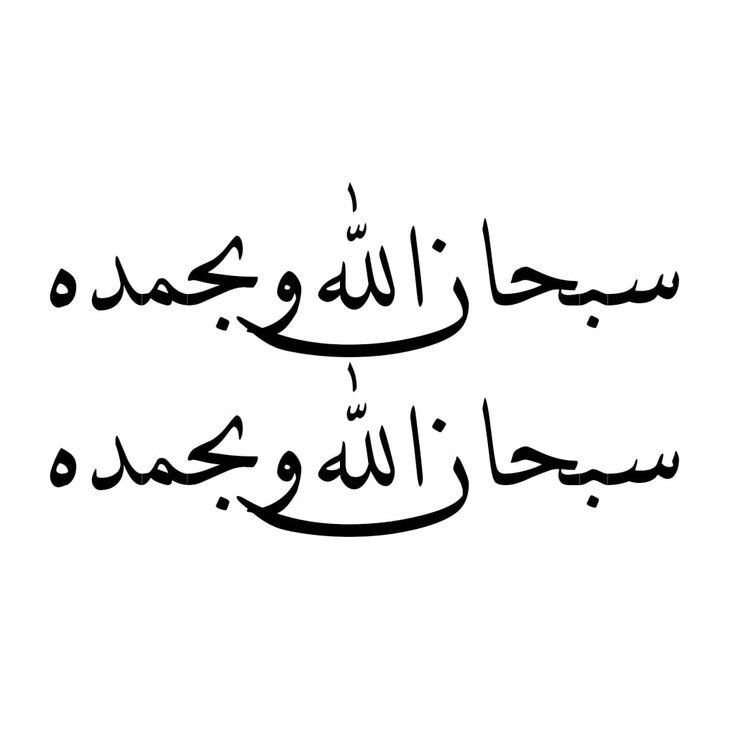 سبحان الله وبحمده
سبحان الله وبحمده